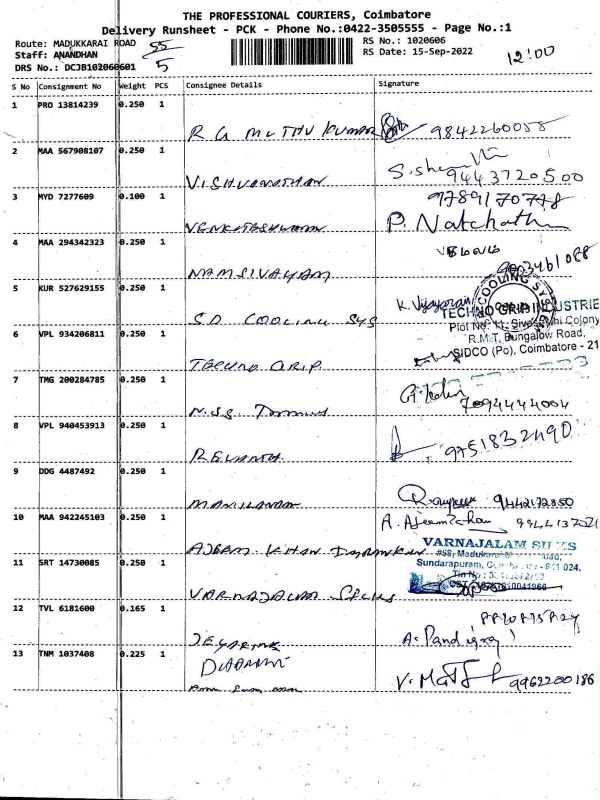 THE PROFESSIONAL COURIERS, Coimbatore
Delivery Runsheet - PCK - Phone No.:0422-3505555 - Page No.:1
Route: MADUKKARAI ROAD 55
Staff: ANANDHAN
DRS No.: DCJB102060601 5
RS No.: 1020606
RS Date: 15-Sep-2022
12:00
S No Consignment No Weight PCS Consignee Details Signature
1 PRO 13814239 0.250 1
R G MUTHU KUMAR 9842260058
2 MAA 567908107 0.250 1
VISHVANATHAN 9443720500
3 MYD 7277609 0.100 1 9789170778
VENKATESHWARAN P. Natchath
4 MAA 294342323 0.250 1
NAMSIVAYAM 9003461088
5 KUR 527629155 0.250 1
S.D COOLING SYS K. Vijayaraj
COOLING SYS
TECHNO GRIP INDUSTRIE
Plot No. 11, Sivashakthi Colony
R.M.T. Bungalow Road,
SIDCO (Po), Coimbatore - 21
6 VPL 934206811 0.250 1
TECHNO GRIP
7 TMG 200284785 0.250 1
N.SS. 7094444004
8 VPL 940453913 0.250 1
REVANTH. 9751832490
9 DDG 4487492 0.250 1
MANILANDAN 9442172850
10 MAA 942245103 0.250 1
A. Ajeemkhan 9944137021
AJEAM KHAN
VARNAJALAM SILKS
#58, Madukarai Road,
Sundarapuram, Coimbatore - 641 024.
11 SRT 14730085 0.250 1
VARNAJALAM SILKS
12 TVL 6181600 0.165 1
A. Pandiyraj
13 TNM 1037408 0.225 1
DHARANI
V. 9962200186